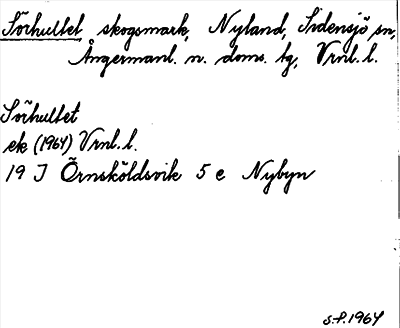 Sörhultet, skogsmark, Nyland, Sidensjö sn,
Ångermanl. n. doms. tg, Vrnl. l.
Sörhultet
ek (1964) Vrnl. l.
19 J Örnsköldsvik 5 e Nybyn
S.P. 1964